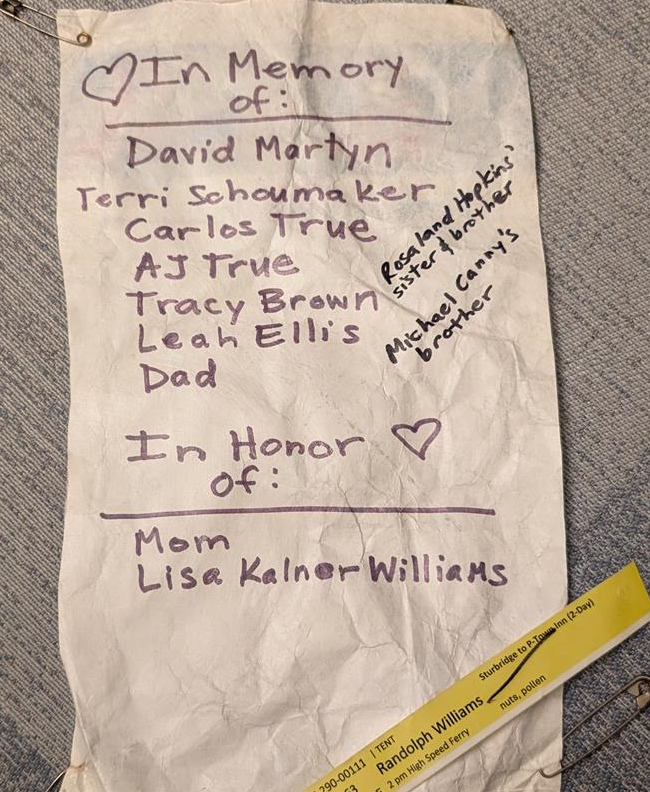 In Memory
of:
David Martyn
Terri Schoumaker
Carlos True
AJ True
Tracy Brown
Leah Ellis
Dad
Rosaland Hopkins'
sister & brother
Michael Canny's
brother
In Honor
of:
Mom
Lisa Kalner Williams
Sturbridge to P-Town Inn (2-Day)
290-00111 | TENT
Randolph Williams
nuts, pollen
2 pm High Speed Ferry